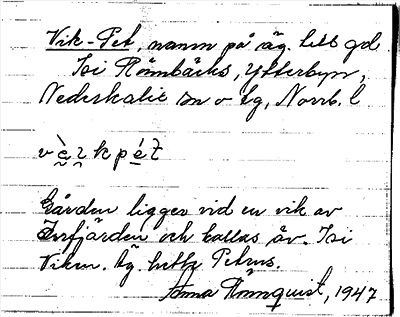 Vik-Pet, namn på äg. till gd
Isi Rönnbäcks, Ytterbyn,
Nederkalix sn o tg, Norrb. l
Gården ligger vid en vik av
Innfjärden och kallas äv. Isi
Viken. Äg. hette Petrus.
Anna Rönnquist, 1947